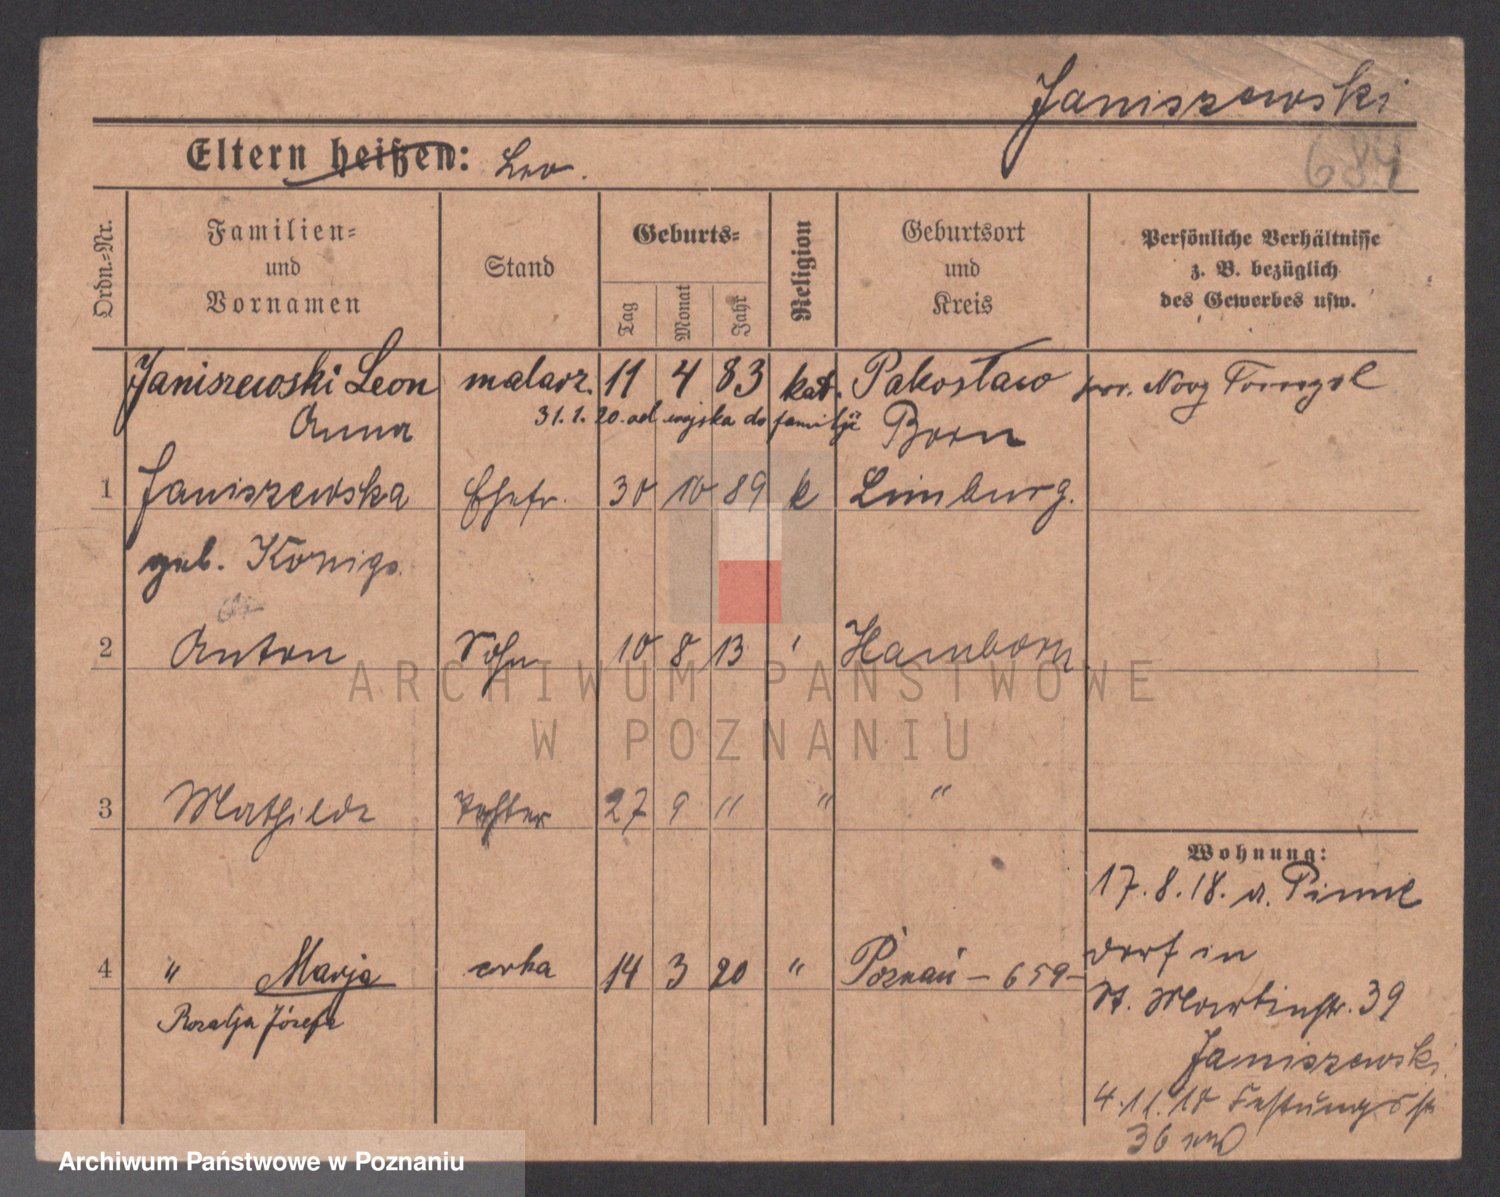 Janiszewski
684
Eltern heißen: Leo.
Ordn.-Nr.
Familien-
und
Vornamen
Stand
Geburts-
Tag
Monat
Jahr
Religion
Geburtsort
und
Kreis
Persönliche Verhältnisse
z. B. bezüglich
des Gewerbes usw.
Janiszewski Leon malarz. 11 4 83 kat. Pakosław pow. Nowy
31.1.20. od wojska do familji
Anna Born
1 Janiszewska Ehefr. 30 10 89 k Limburg.
geb. Königs
2 Anton Sohn 10 8 13 ' Hamborn
3 Mathilde Tochter 27 9 " " "
4 " Marja corka 14 3 20 " Poznań - 659-
Rozalja Józefa
Wohnung:
17.8.18. a. Pinne
dorf in
St. Martinstr. 39
Janiszewski
4.11.18 Festungsstr
36
ARCHIWUM PAŃSTWOWE
W POZNANIU
Archiwum Państwowe w Poznaniu